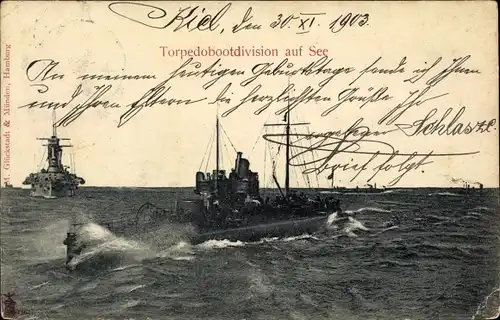 Kiel, den 30. XI. 1903.
Torpedobootdivision auf See
An meinem heutigen Geburtstage sende ich Ihnen
und Ihren Eltern die herzlichsten Grüße Ihr
ergebener Schlas
Brief folgt.
M. Glückstadt & Münden, Hamburg